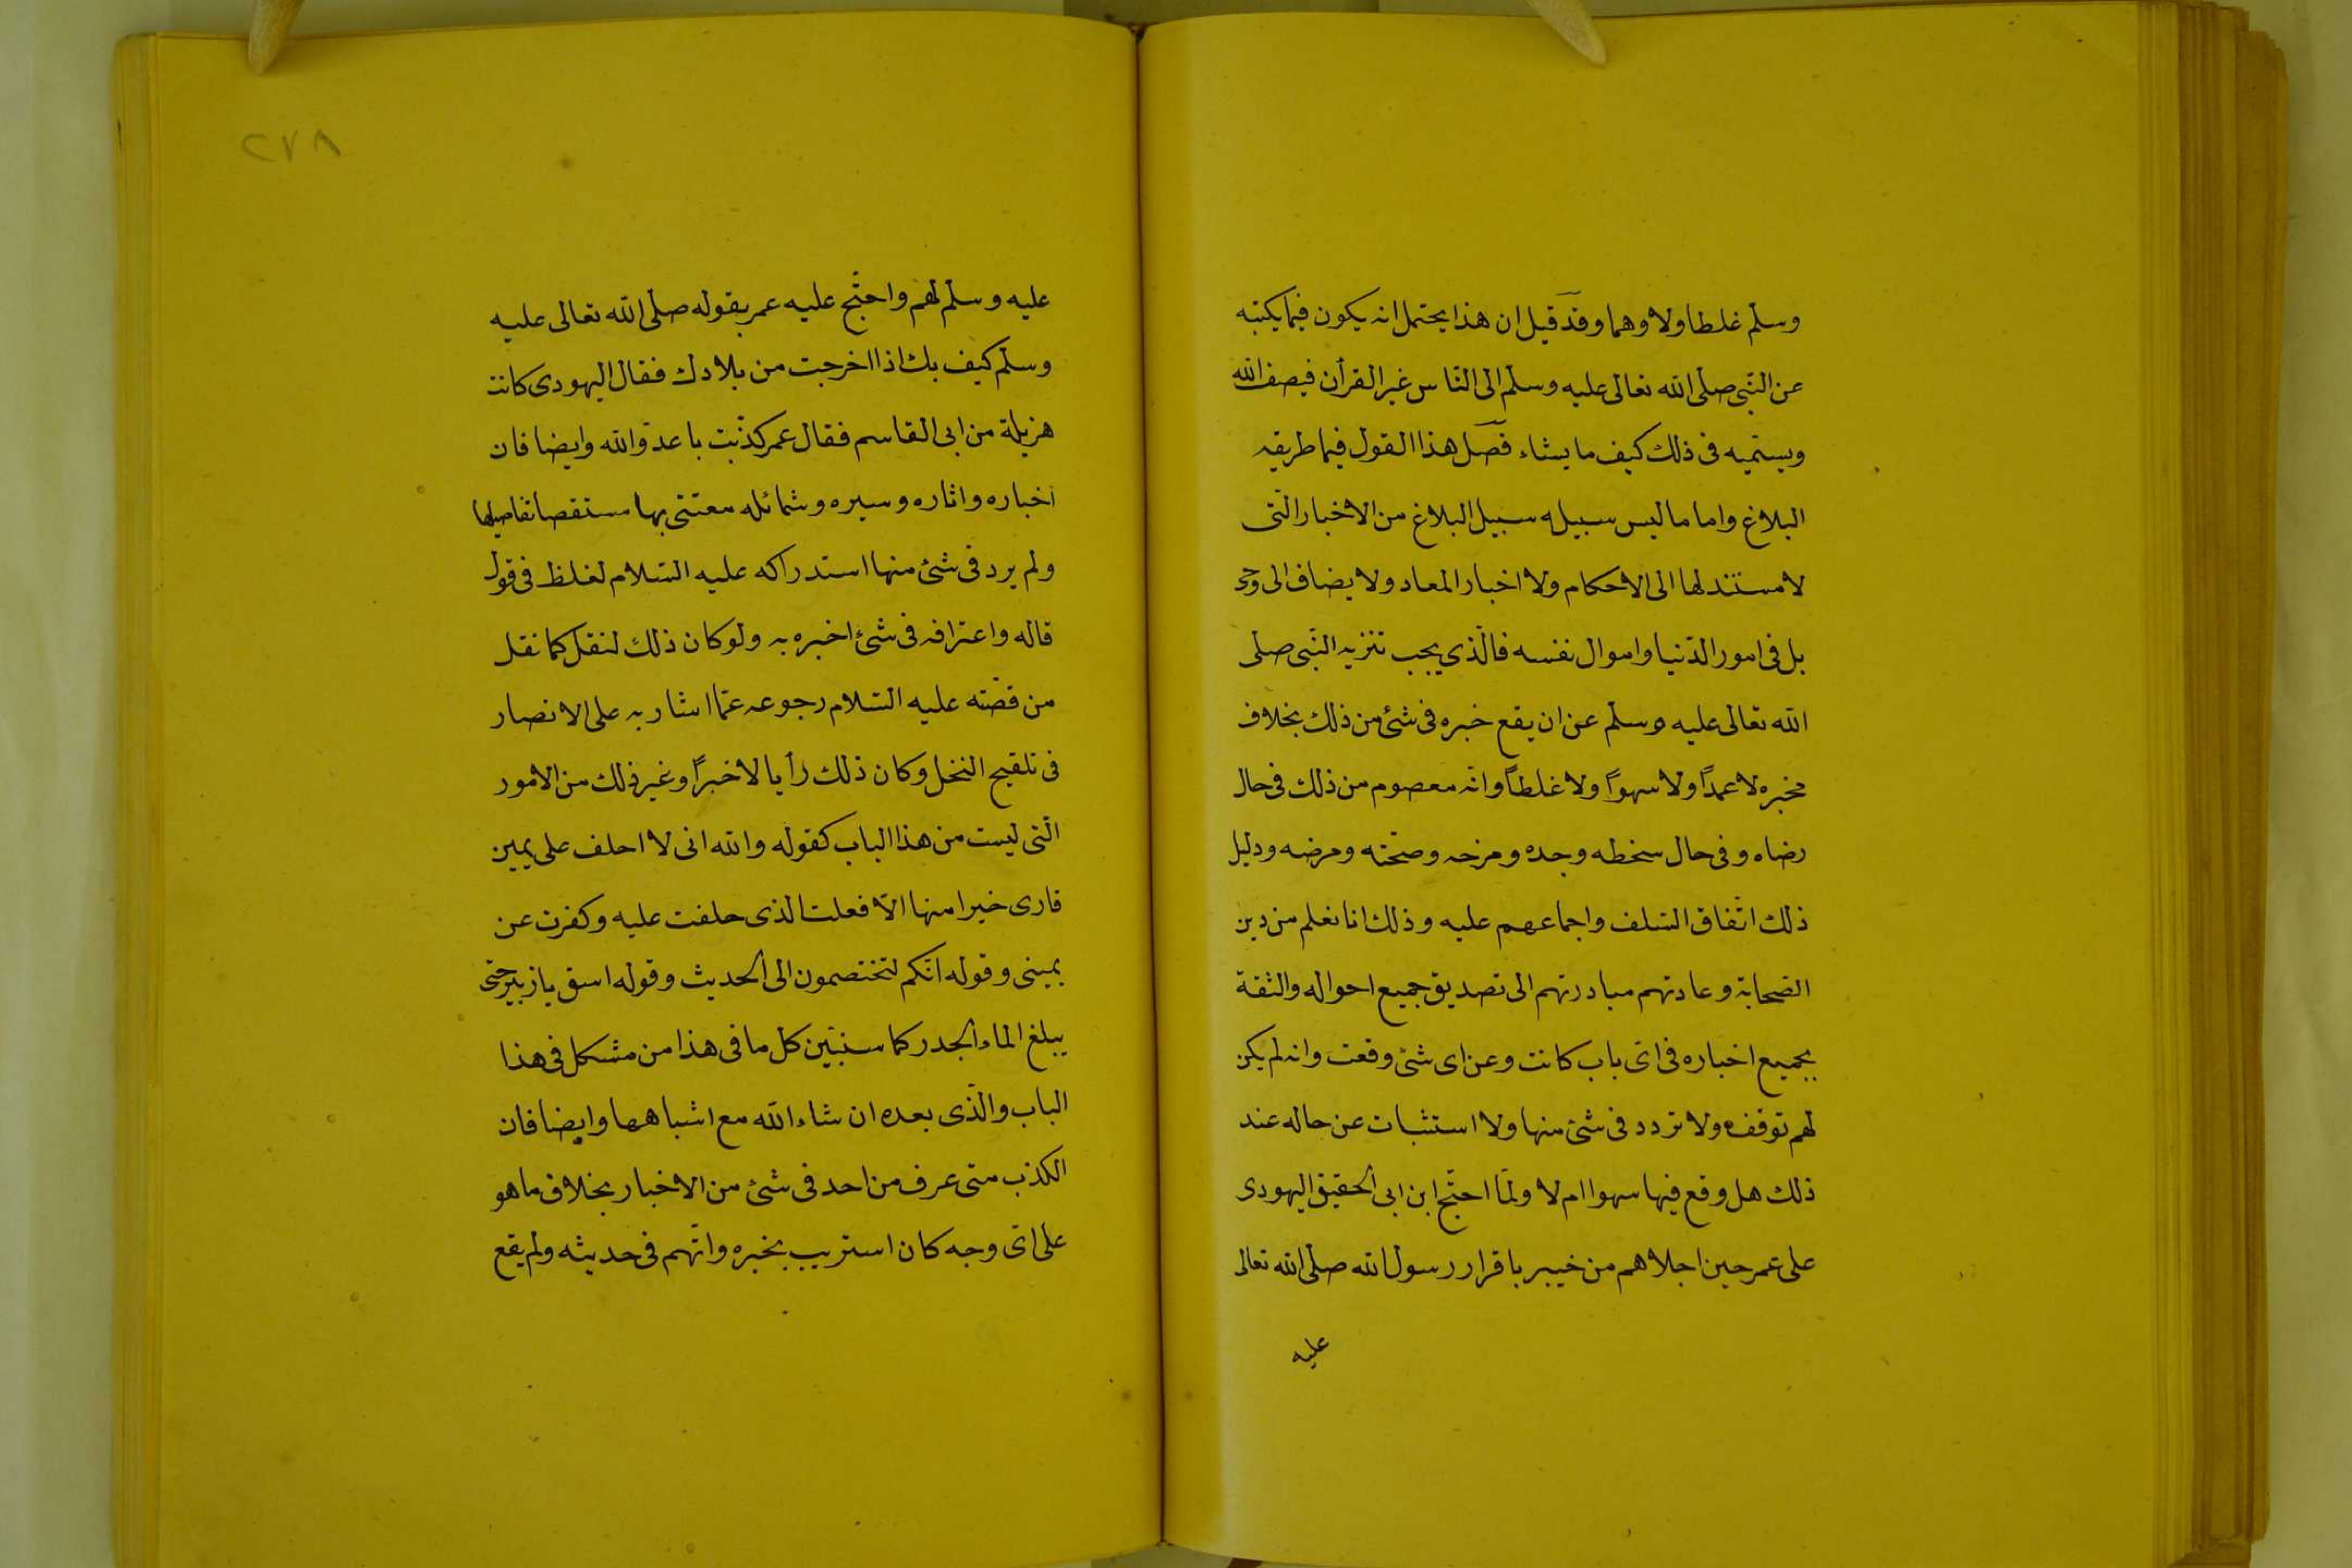 وسلم غلطا ولا وهما وقد قيل ان هذا يحتمل انه يكون فيما يكتبه
عن النبى صلى الله تعالى عليه وسلم الى الناس غير القرأن فيصف الله
ويسميه فى ذلك كيف ما يشاء فصل هذا القول فيما طريقه
البلاغ واما ما ليس سبيله سبيل البلاغ من الاخبار التى
لا مستند لها الى الاحكام ولا اخبار المعاد ولا يضاف الى وحى
بل فى امور الدنيا واموال نفسه فالذى يجب تنزيه النبى صلى
الله تعالى عليه وسلم عن ان يقع خبره فى شئ من ذلك بخلاف
مخبره لا عمداً ولا سهواً ولا غلطاً وانه معصوم من ذلك فى حال
رضاه وفى حال سخطه وجده ومزحه وصحته ومرضه ودليل
ذلك اتفاق السلف واجماعهم عليه وذلك انا نعلم من دين
الصحابة وعادتهم مبادرتهم الى تصديق جميع احواله والثقة
بجميع اخباره فى اى باب كانت وعن اى شئ وقعت وانه لم يكن
لهم توقف ولا تردد فى شئ منها ولا استثبات عن حاله عند
ذلك هل وقع فيها سهوا ام لا ولما احتج ابن ابى الحقيق اليهودى
على عمر حين اجلاهم من خيبر باقرار رسول الله صلى الله تعالى
عليه
٢٧٨
عليه وسلم لهم واحتج عليه عمر بقوله صلى الله تعالى عليه
وسلم كيف بك اذا اخرجت من بلادك فقال اليهودى كانت
هزيلة من ابى القاسم فقال عمر كذبت يا عدو الله وايضا فان
اخباره واثاره وسيره وشمائله معتنى بها مستقصا تفاصيلها
ولم يرد فى شئ منها استدراكه عليه السلام لغلظ فى قول
قاله واعترافه فى شئ اخبره به ولو كان ذلك لنقل كما نقل
من قصته عليه السلام رجوعه عما اشار به على الانصار
فى تلقيح النخل وكان ذلك رأيا لا خبراً وغير ذلك من الامور
التى ليست من هذا الباب كقوله والله انى لا احلف على يمين
فارى خيرا منها الا فعلت الذى حلفت عليه وكفرت عن
يمينى وقوله انكم لتختصمون الى الحديث وقوله اسق يا زبير حتى
يبلغ الماء الجدر كما سنبين كل ما فى هذا من مشكل فى هذا
الباب والذى بعده ان شاء الله مع اشباهها وايضا فان
الكذب متى عرف من احد فى شئ من الاخبار بخلاف ما هو
على اى وجه كان استريب بخبره واتهم فى حديثه ولم يقع